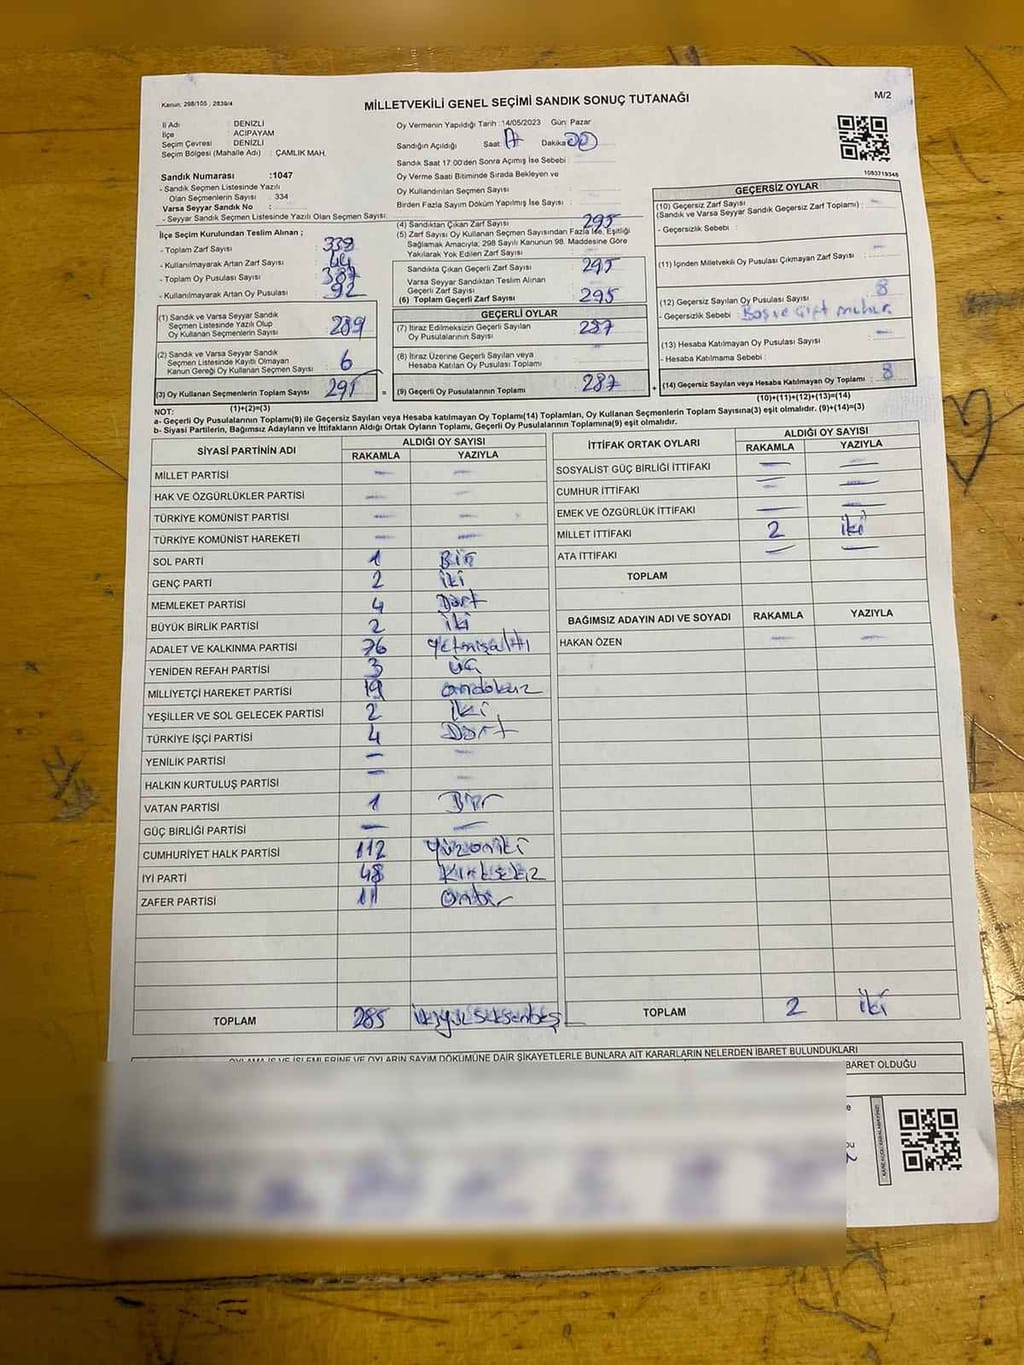 Kanun: 298/105 , 2839/4
MİLLETVEKİLİ GENEL SEÇİMİ SANDIK SONUÇ TUTANAĞI
M/2
İl Adı : DENİZLİ
İlçe : ACIPAYAM
Seçim Çevresi : DENİZLİ
Seçim Bölgesi (Mahalle Adı) : ÇAMLIK MAH.
Oy Vermenin Yapıldığı Tarih :14/05/2023 Gün: Pazar
Sandığın Açıldığı Saat: 17 Dakika: 00
Sandık Saat 17:00'den Sonra Açılmış İse Sebebi :
Oy Verme Saati Bitiminde Sırada Bekleyen ve
Oy Kullandırılan Seçmen Sayısı
Birden Fazla Sayım Döküm Yapılmış İse Sayısı :
1083719348
Sandık Numarası :1047
- Sandık Seçmen Listesinde Yazılı
Olan Seçmenlerin Sayısı : 334
Varsa Seyyar Sandık No :
- Seyyar Sandık Seçmen Listesinde Yazılı Olan Seçmen Sayısı:
İlçe Seçim Kurulundan Teslim Alınan ;
- Toplam Zarf Sayısı : 339
- Kullanılmayarak Artan Zarf Sayısı : 44
- Toplam Oy Pusulası Sayısı : 387
- Kullanılmayarak Artan Oy Pusulası : 92
(1) Sandık ve Varsa Seyyar Sandık
Seçmen Listesinde Yazılı Olup
Oy Kullanan Seçmenlerin Sayısı : 289
(2) Sandık ve Varsa Seyyar Sandık
Seçmen Listesinde Kayıtlı Olmayan
Kanun Gereği Oy Kullanan Seçmen Sayısı : 6
(3) Oy Kullanan Seçmenlerin Toplam Sayısı : 295
(1)+(2)=(3)
(4) Sandıktan Çıkan Zarf Sayısı : 295
(5) Zarf Sayısı Oy Kullanan Seçmen Sayısından Fazla İse, Eşitliği
Sağlamak Amacıyla; 298 Sayılı Kanunun 98. Maddesine Göre
Yakılarak Yok Edilen Zarf Sayısı :
Sandıkta Çıkan Geçerli Zarf Sayısı : 295
Varsa Seyyar Sandıktan Teslim Alınan
Geçerli Zarf Sayısı :
(6) Toplam Geçerli Zarf Sayısı : 295
GEÇERLİ OYLAR
(7) İtiraz Edilmeksizin Geçerli Sayılan
Oy Pusulalarının Sayısı : 287
(8) İtiraz Üzerine Geçerli Sayılan veya
Hesaba Katılan Oy Pusulası Toplamı :
= (9) Geçerli Oy Pusulalarının Toplamı : 287
GEÇERSİZ OYLAR
(10) Geçersiz Zarf Sayısı : -
(Sandık ve Varsa Seyyar Sandık Geçersiz Zarf Toplamı) :
- Geçersizlik Sebebi :
(11) İçinden Milletvekili Oy Pusulası Çıkmayan Zarf Sayısı : -
(12) Geçersiz Sayılan Oy Pusulası Sayısı : 8
- Geçersizlik Sebebi : Boş ve çift mühür.
(13) Hesaba Katılmayan Oy Pusulası Sayısı : -
- Hesaba Katılmama Sebebi :
+ (14) Geçersiz Sayılan veya Hesaba Katılmayan Oy Toplamı : 8
(10)+(11)+(12)+(13)=(14)
NOT:
a- Geçerli Oy Pusulalarının Toplamı(9) ile Geçersiz Sayılan veya Hesaba katılmayan Oy Toplamı(14) Toplamları, Oy Kullanan Seçmenlerin Toplam Sayısına(3) eşit olmalıdır. (9)+(14)=(3)
b- Siyasi Partilerin, Bağımsız Adayların ve İttifakların Aldığı Ortak Oyların Toplamı, Geçerli Oy Pusulalarının Toplamına(9) eşit olmalıdır.
SİYASİ PARTİNİN ADI
ALDIĞI OY SAYISI
RAKAMLA YAZIYLA
MİLLET PARTİSİ - -
HAK VE ÖZGÜRLÜKLER PARTİSİ - -
TÜRKİYE KOMÜNİST PARTİSİ - -
TÜRKİYE KOMÜNİST HAREKETİ - -
SOL PARTİ 1 Bir
GENÇ PARTİ 2 iki
MEMLEKET PARTİSİ 4 Dört
BÜYÜK BİRLİK PARTİSİ 2 iki
ADALET VE KALKINMA PARTİSİ 76 yetmişaltı
YENİDEN REFAH PARTİSİ 3 üç
MİLLİYETÇİ HAREKET PARTİSİ 19 ondokuz
YEŞİLLER VE SOL GELECEK PARTİSİ 2 iki
TÜRKİYE İŞÇİ PARTİSİ 4 Dört
YENİLİK PARTİSİ - -
HALKIN KURTULUŞ PARTİSİ - -
VATAN PARTİSİ 1 Bir
GÜÇ BİRLİĞİ PARTİSİ - -
CUMHURİYET HALK PARTİSİ 112 yüzoniki
İYİ PARTİ 48 Kırksekiz
ZAFER PARTİSİ 11 onbir
TOPLAM 285 ikiyüzseksenbeş
İTTİFAK ORTAK OYLARI
ALDIĞI OY SAYISI
RAKAMLA YAZIYLA
SOSYALİST GÜÇ BİRLİĞİ İTTİFAKI - -
CUMHUR İTTİFAKI - -
EMEK VE ÖZGÜRLÜK İTTİFAKI - -
MİLLET İTTİFAKI 2 iki
ATA İTTİFAKI - -
TOPLAM
BAĞIMSIZ ADAYIN ADI VE SOYADI RAKAMLA YAZIYLA
HAKAN ÖZEN - -
TOPLAM 2 iki
OYLAMA İŞ VE İŞLEMLERİNE VE OYLARIN SAYIM DÖKÜMÜNE DAİR ŞİKAYETLERLE BUNLARA AİT KARARLARIN NELERDEN İBARET BULUNDUKLARI
BARET OLDUĞU